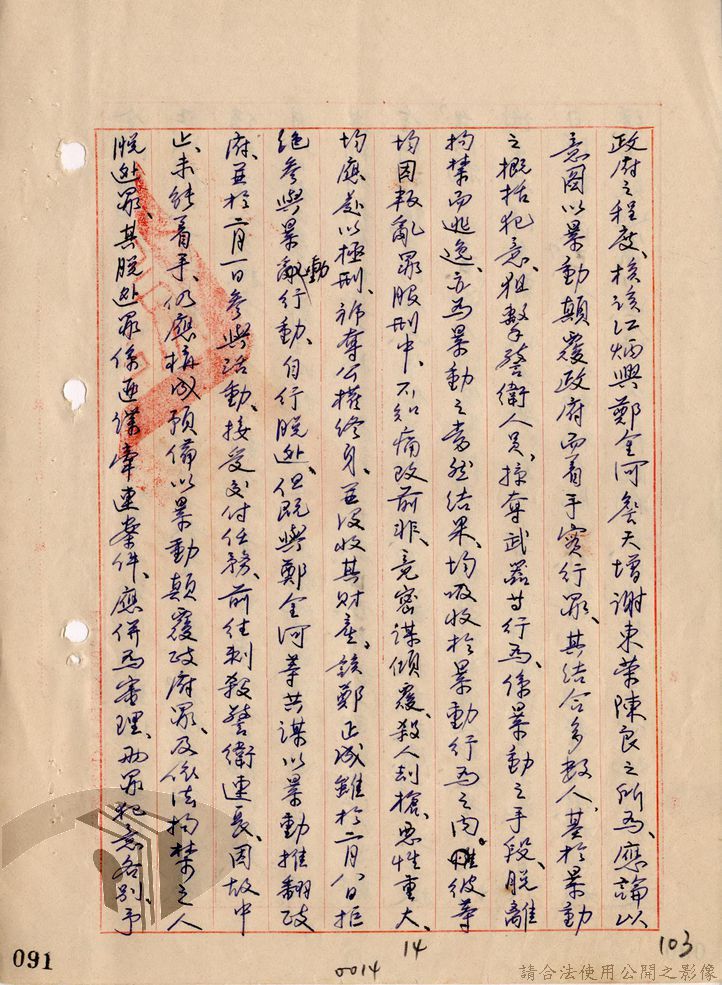 政府之程度、核該江炳興鄭金河詹天增謝東榮陳良之所為、應論以
意圖以暴動顛覆政府而着手實行罪、其結合多數人、基於暴動
之概括犯意、狙擊警衛人員、掠奪武器等行為、係暴動之手段、脫離
拘禁而逃逸、亦為暴動之當然結果、均吸收於暴動行為之內。惟彼等
均因叛亂罪服刑中、不知痛改前非、竟密謀傾覆、殺人刦槍、惡性重大、
均應處以極刑、褫奪公權終身、並沒收其財產、該鄭正成雖於二月八日拒
絕參與暴動行動、自行脫逃、但既與鄭金河等共謀以暴動推翻政
府、並於二月一日參與活動、接受交付任務、前往刺殺警衛連長、因故中
止、未能着手、仍應構成預備以暴動顛覆政府罪、及依法拘禁之人
脫逃罪、其脫逃罪係匪諜牽連案件、應併為審理、兩罪犯意各別、予
103
14
0014
091
請合法使用公開之影像